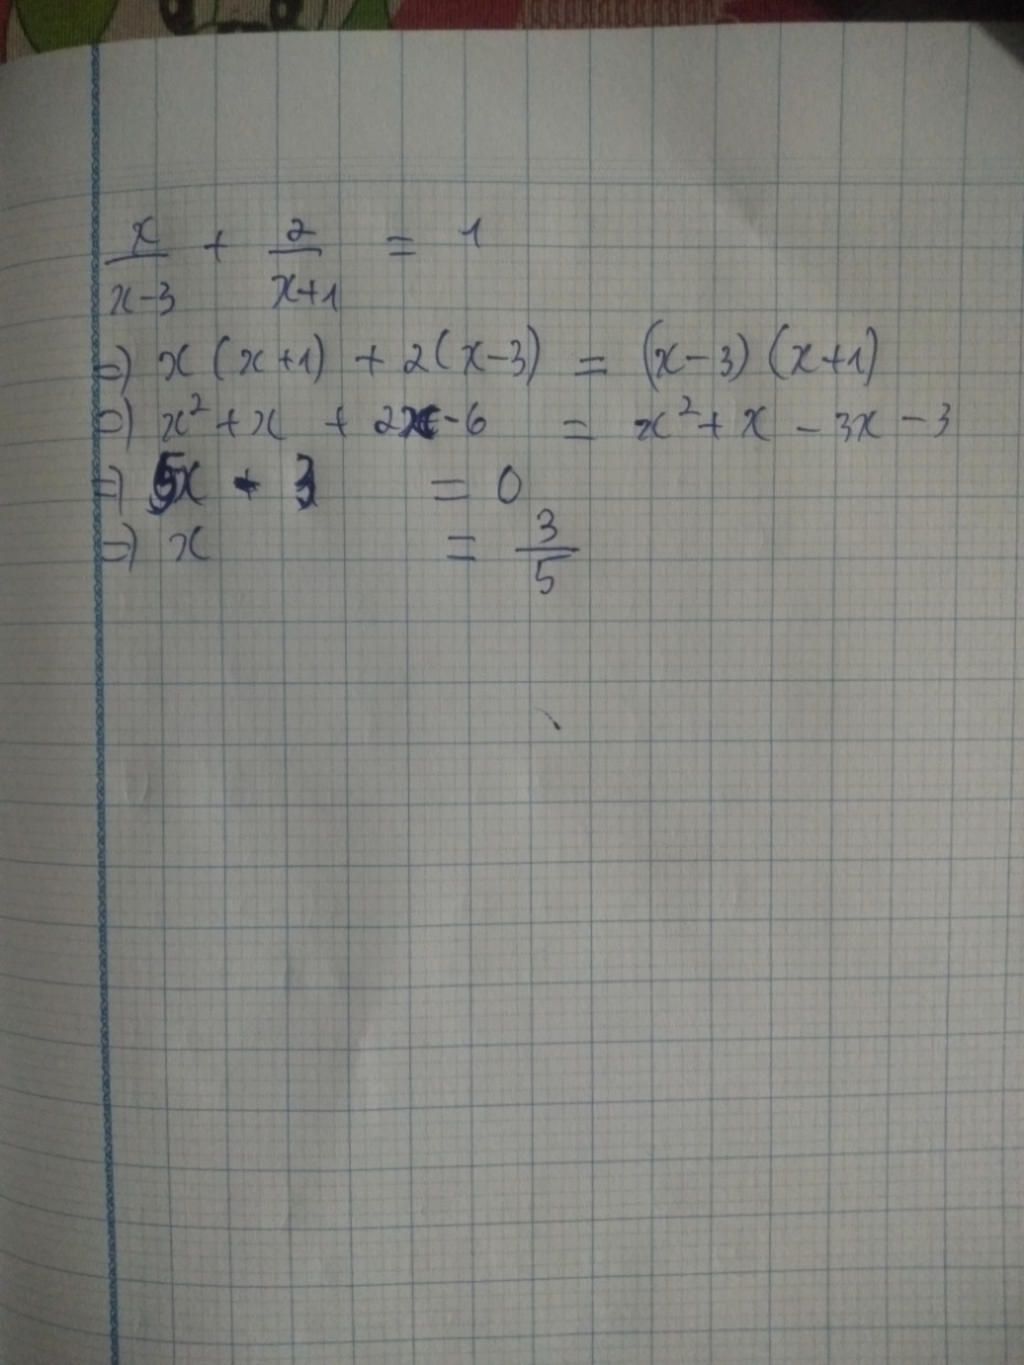 x/(x-3) + 2/(x+1) = 1
=) x(x+1) + 2(x-3) = (x-3)(x+1)
=) x² + x + 2x - 6 = x² + x - 3x - 3
=) 5x - 3 = 0
=) x = 3/5